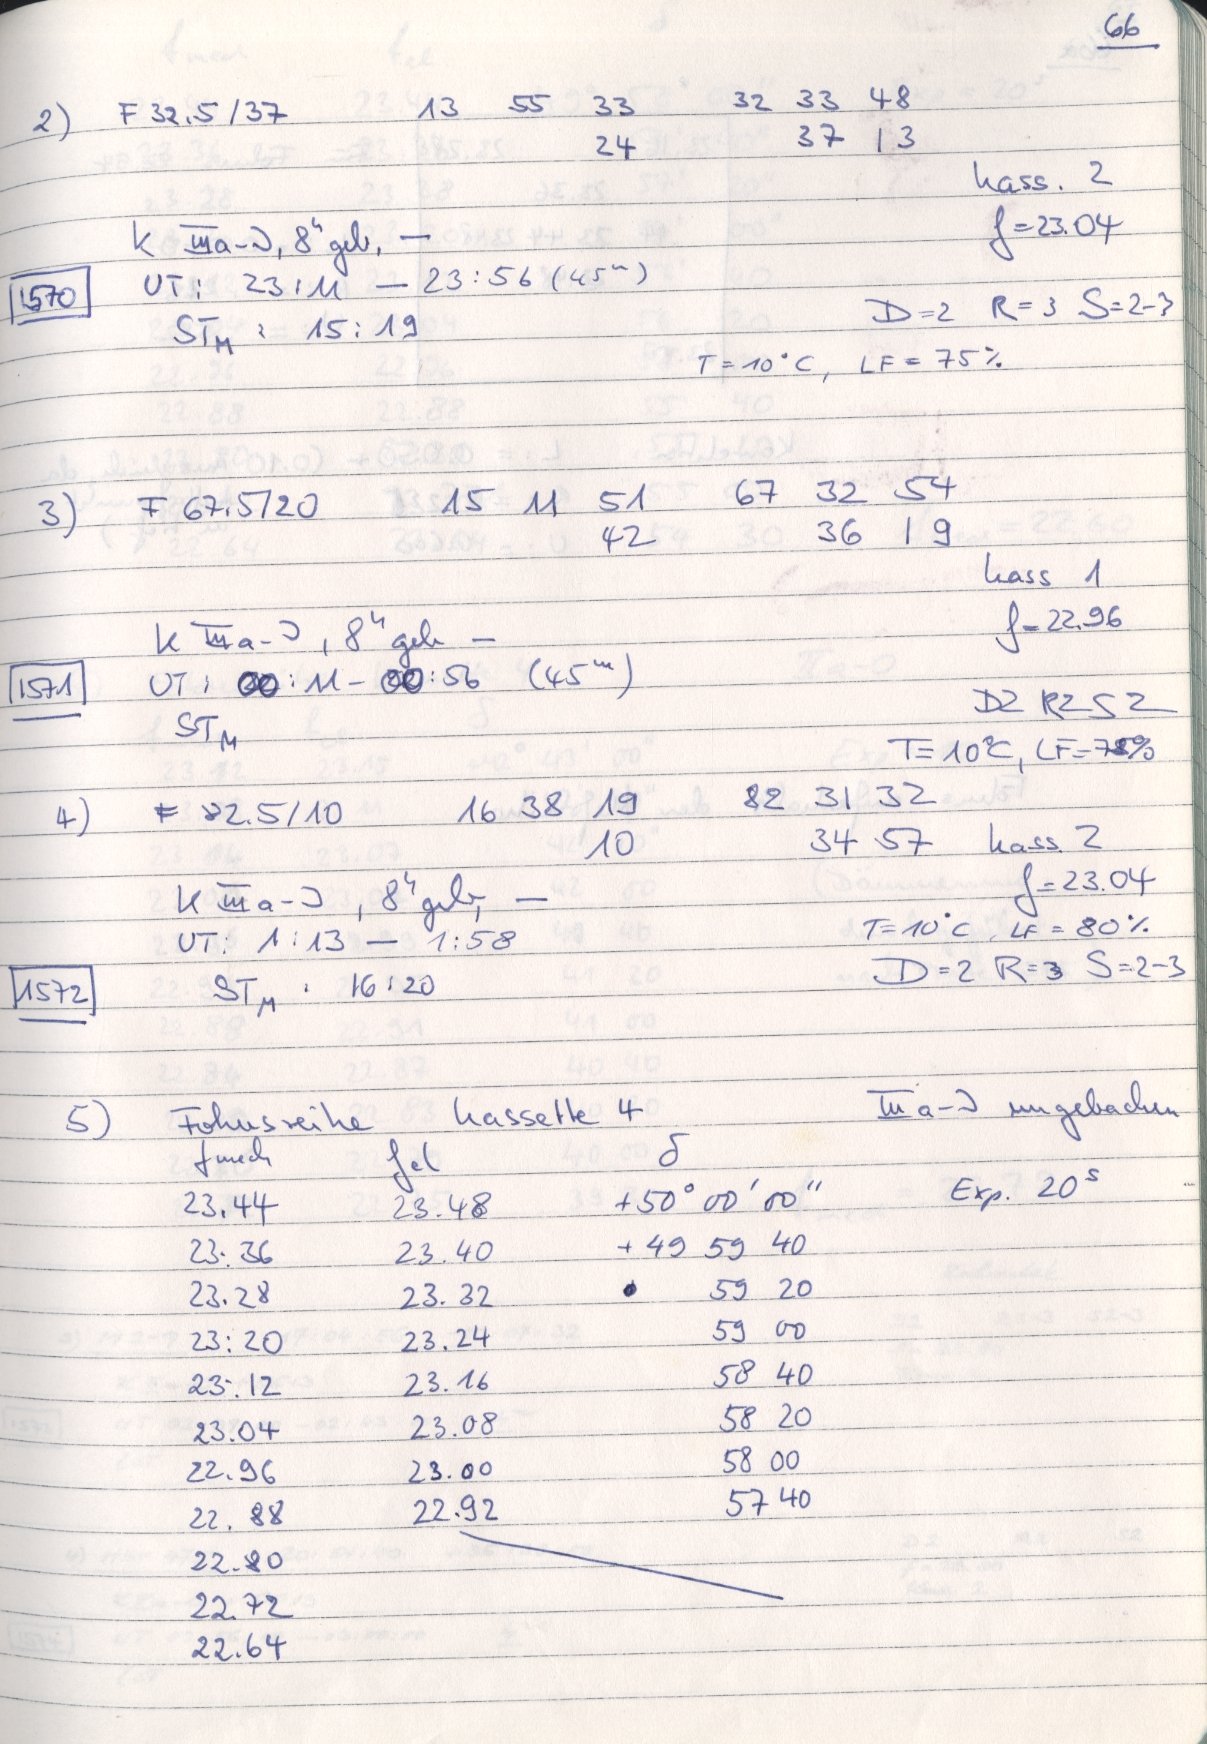 66
2) F 32.5/37 13 55 33 32 33 48
24 37 13
Kass. 2
K IIIa-J, 8h geb, — f=23.04
1570 UT: 23:11 — 23:56 (45m)
STM : 15:19 D=2 R=3 S=2-3
T=10°C, LF=75%
3) F 67.5/20 15 11 51 67 32 54
42 36 19
Kass 1
K IIIa-J, 8h geb — f=22.96
1571 UT: 00:11 - 00:56 (45m)
STM D2 R2 S2
T=10°C, LF=78%
4) F 2.5/10 16 38 19 82 31 32
10 34 57 Kass. 2
K IIIa-J, 8h geb, — f=23.04
UT: 1:13 — 1:58 T=10°C, LF=80%
1572 STM : 16:20 D=2 R=3 S=2-3
5) Fokusreihe Kassette 4 IIIa-J ungebacken
fmech fel δ
23.44 23.48 +50° 00' 00" Exp. 20s
23.36 23.40 +49 59 40
23.28 23.32 59 20
23:20 23.24 59 00
23.12 23.16 58 40
23.04 23.08 58 20
22.96 23.00 58 00
22.88 22.92 57 40
22.80
22.72
22.64